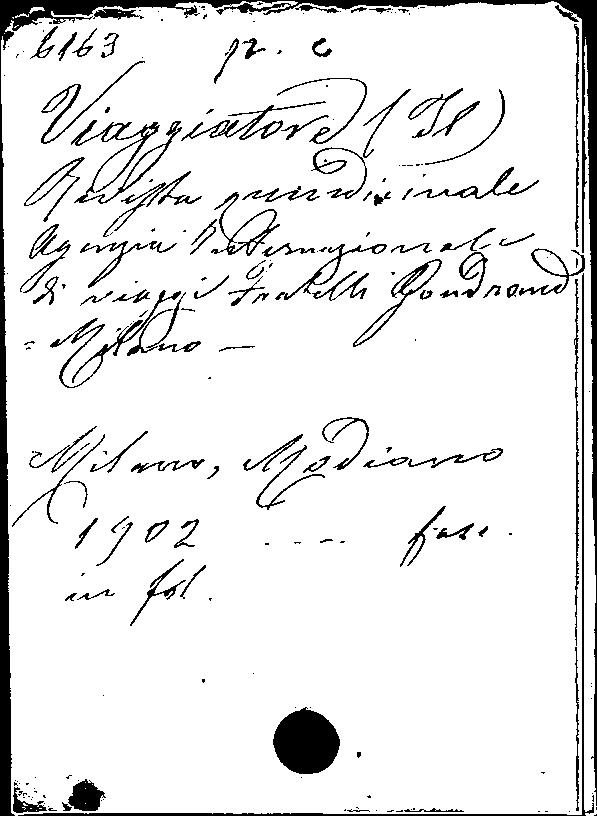 6163 p. c
Viaggiatore (Il)
Rivista quindicinale
Agenzia Internazionale
di viaggi Fratelli Gondrand
- Milano -
Milano, Modiano
1902 .... fasc.
in fol.